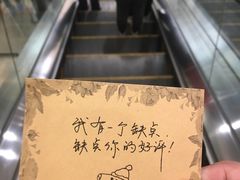 我有一个缺点
缺点你的好评!